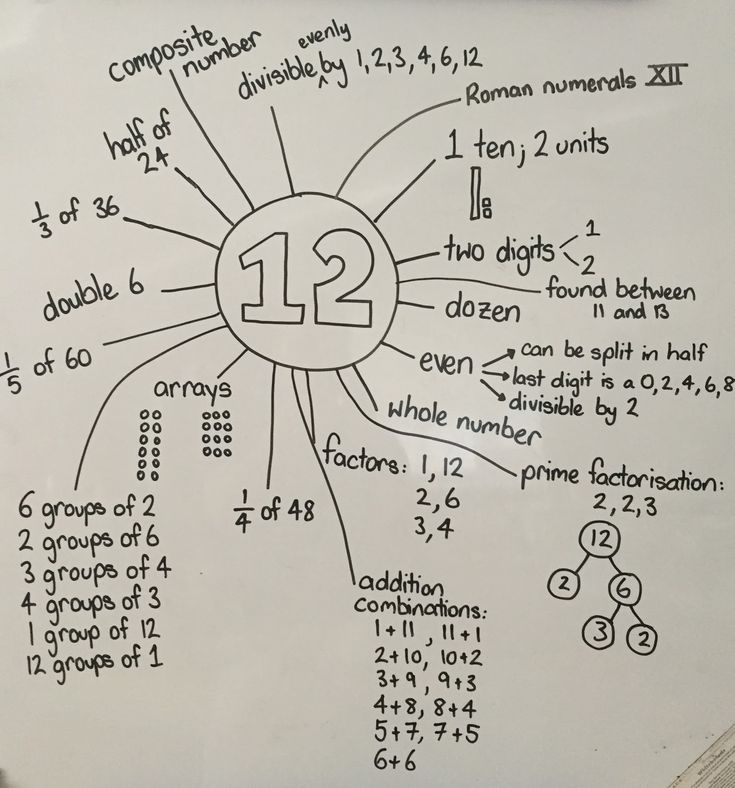 composite
number
evenly
divisible ^ by 1, 2, 3, 4, 6, 12
Roman numerals XII
half of
24
1 ten; 2 units
1/3 of 36
12
two digits
1
2
double 6
found between
11 and 13
dozen
1/5 of 60
even
can be split in half
last digit is a 0, 2, 4, 6, 8
divisible by 2
arrays
whole number
factors: 1, 12
2, 6
3, 4
prime factorisation:
2, 2, 3
12
2
6
3
2
1/4 of 48
6 groups of 2
2 groups of 6
3 groups of 4
4 groups of 3
1 group of 12
12 groups of 1
addition
combinations:
1+11, 11+1
2+10, 10+2
3+9, 9+3
4+8, 8+4
5+7, 7+5
6+6